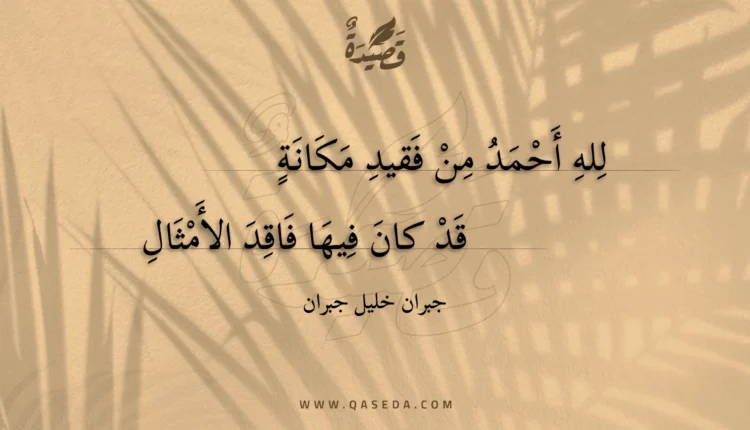 قَصِيْدَةٌ
لِلهِ أَحْمَدُ مِنْ فَقيدِ مَكَانَةٍ
قَدْ كانَ فِيهَا فَاقِدَ الأَمْثَالِ
جبران خليل جبران
WWW.QASEDA.COM